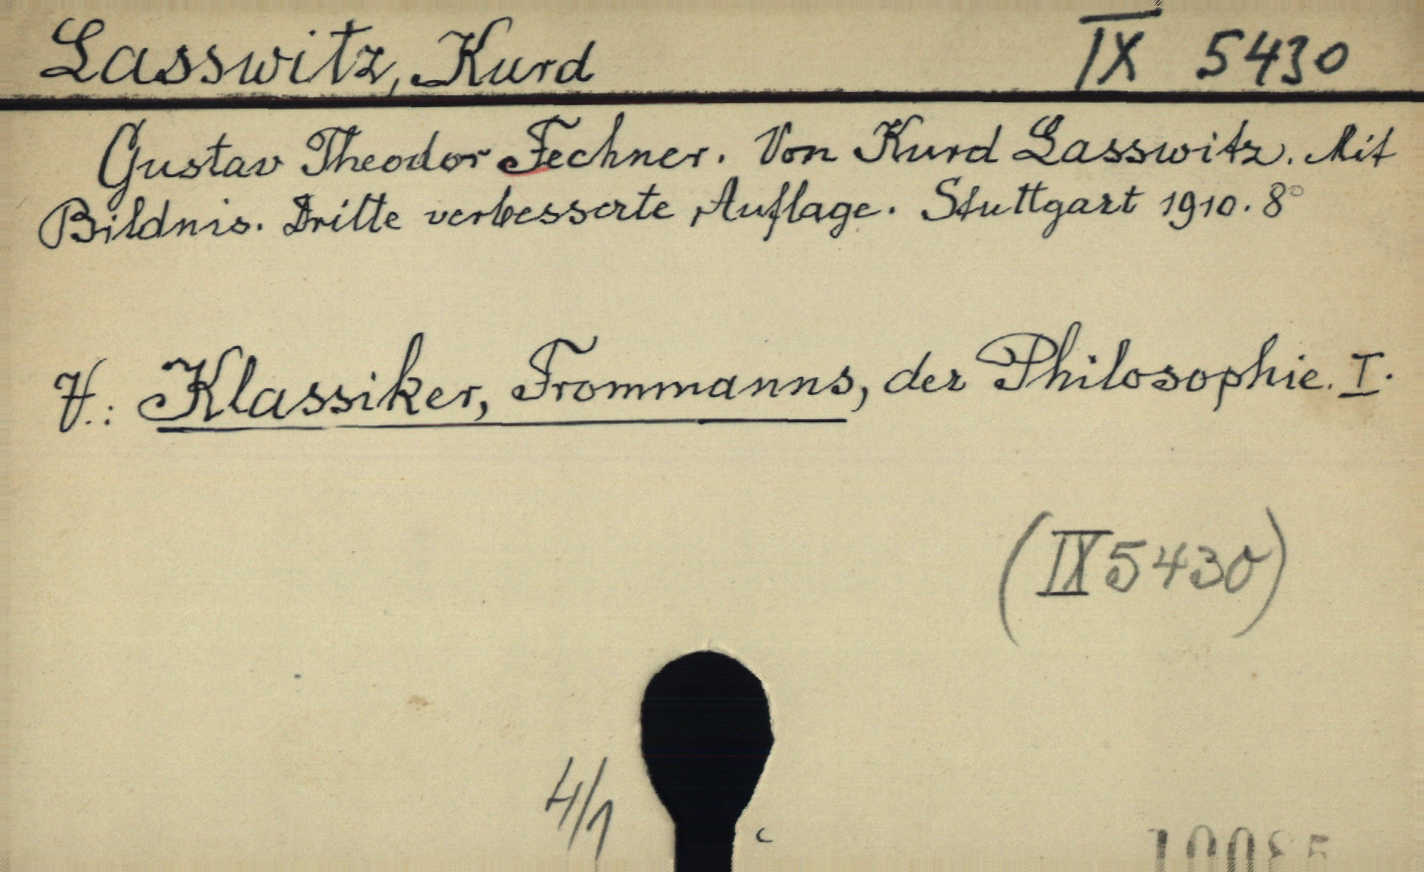 Lasswitz, Kurd IX 5430
Gustav Theodor Fechner. Von Kurd Lasswitz. Mit
Bildnis. Dritte verbesserte Auflage. Stuttgart 1910. 8°
V.: Klassiker, Frommanns, der Philosophie. I.
(IX 5430)
4/1